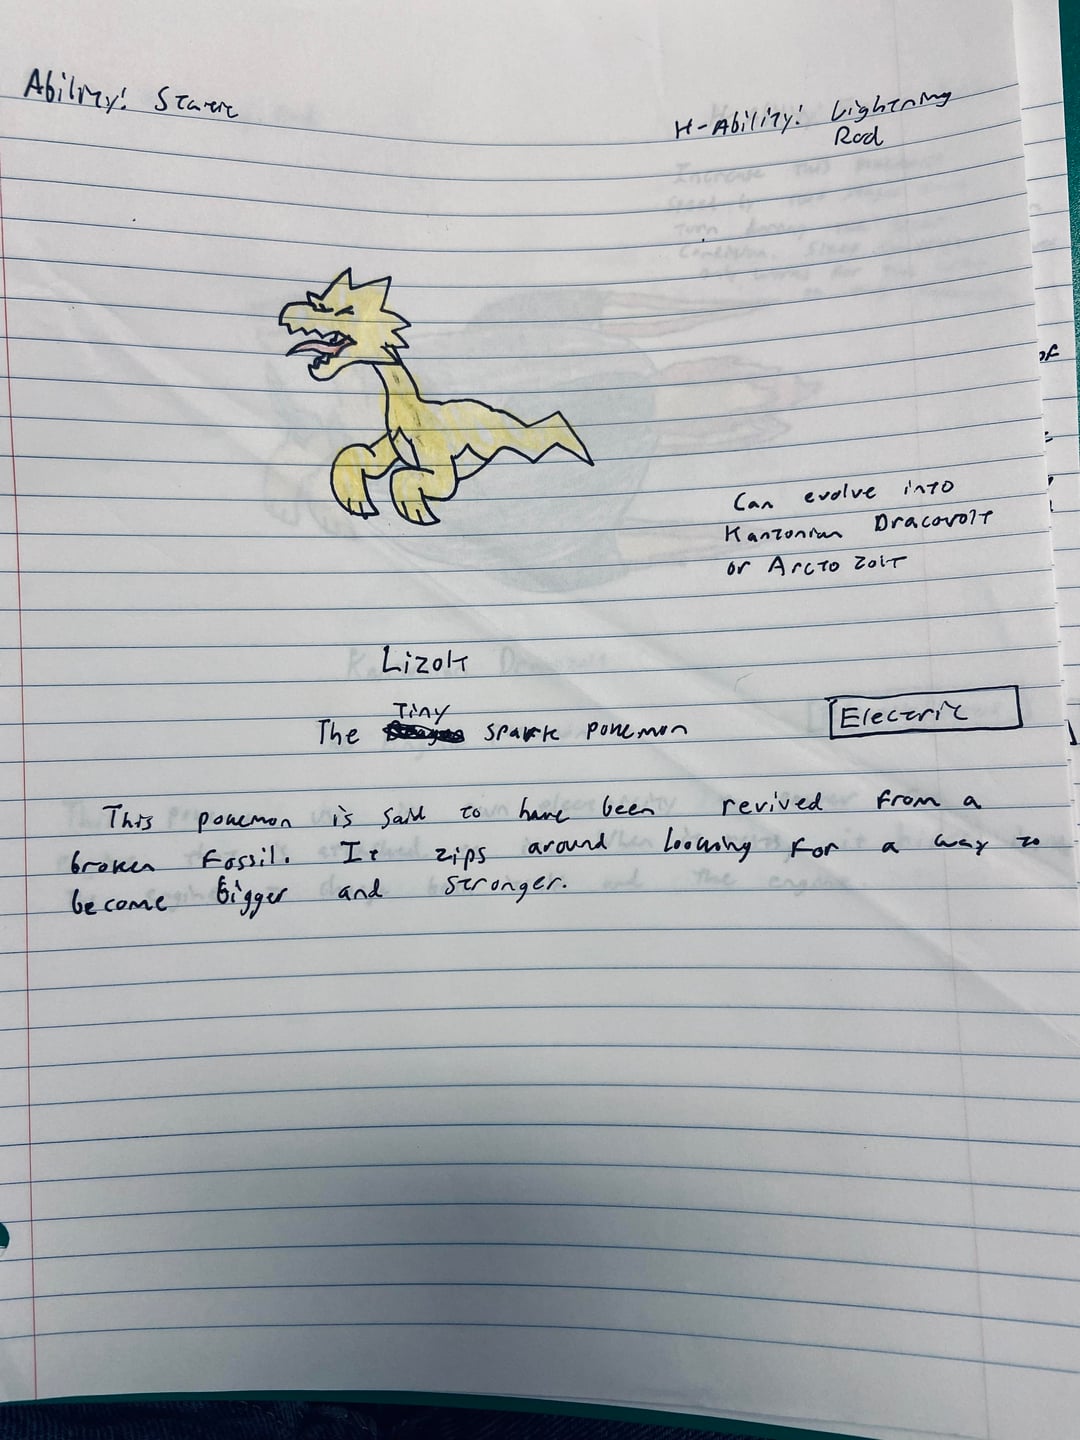 Ability: Static
H-Ability: Lightning
Rod
of
Can evolve into
Kantonian Dracovolt
or Arctozolt
Lizolt
Tiny
The spark pokemon
Electric
This pokemon is said to have been revived from a
broken Fossil. It zips around looking for a way to
become bigger and stronger.